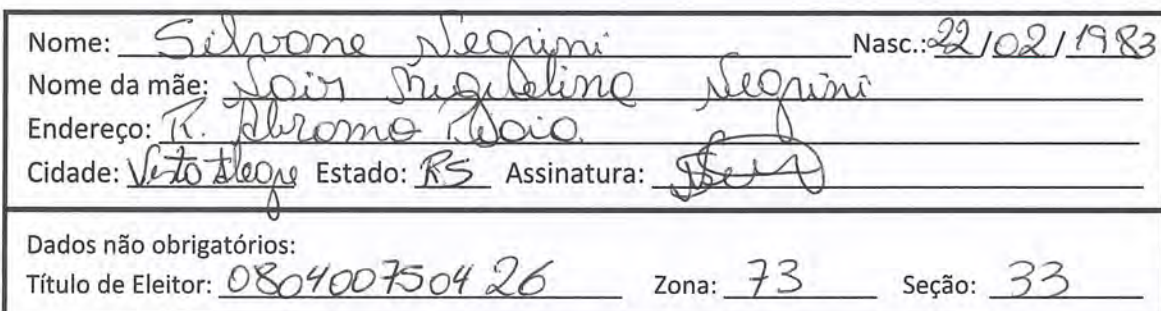 Nome: Silvone Negrini Nasc.: 22/02/1983
Nome da mãe: Nair Miguelina Negrini
Endereço: R. Abramo
Cidade: Vista Alegre Estado: RS Assinatura:
Dados não obrigatórios:
Título de Eleitor: 080400750426 Zona: 73 Seção: 33